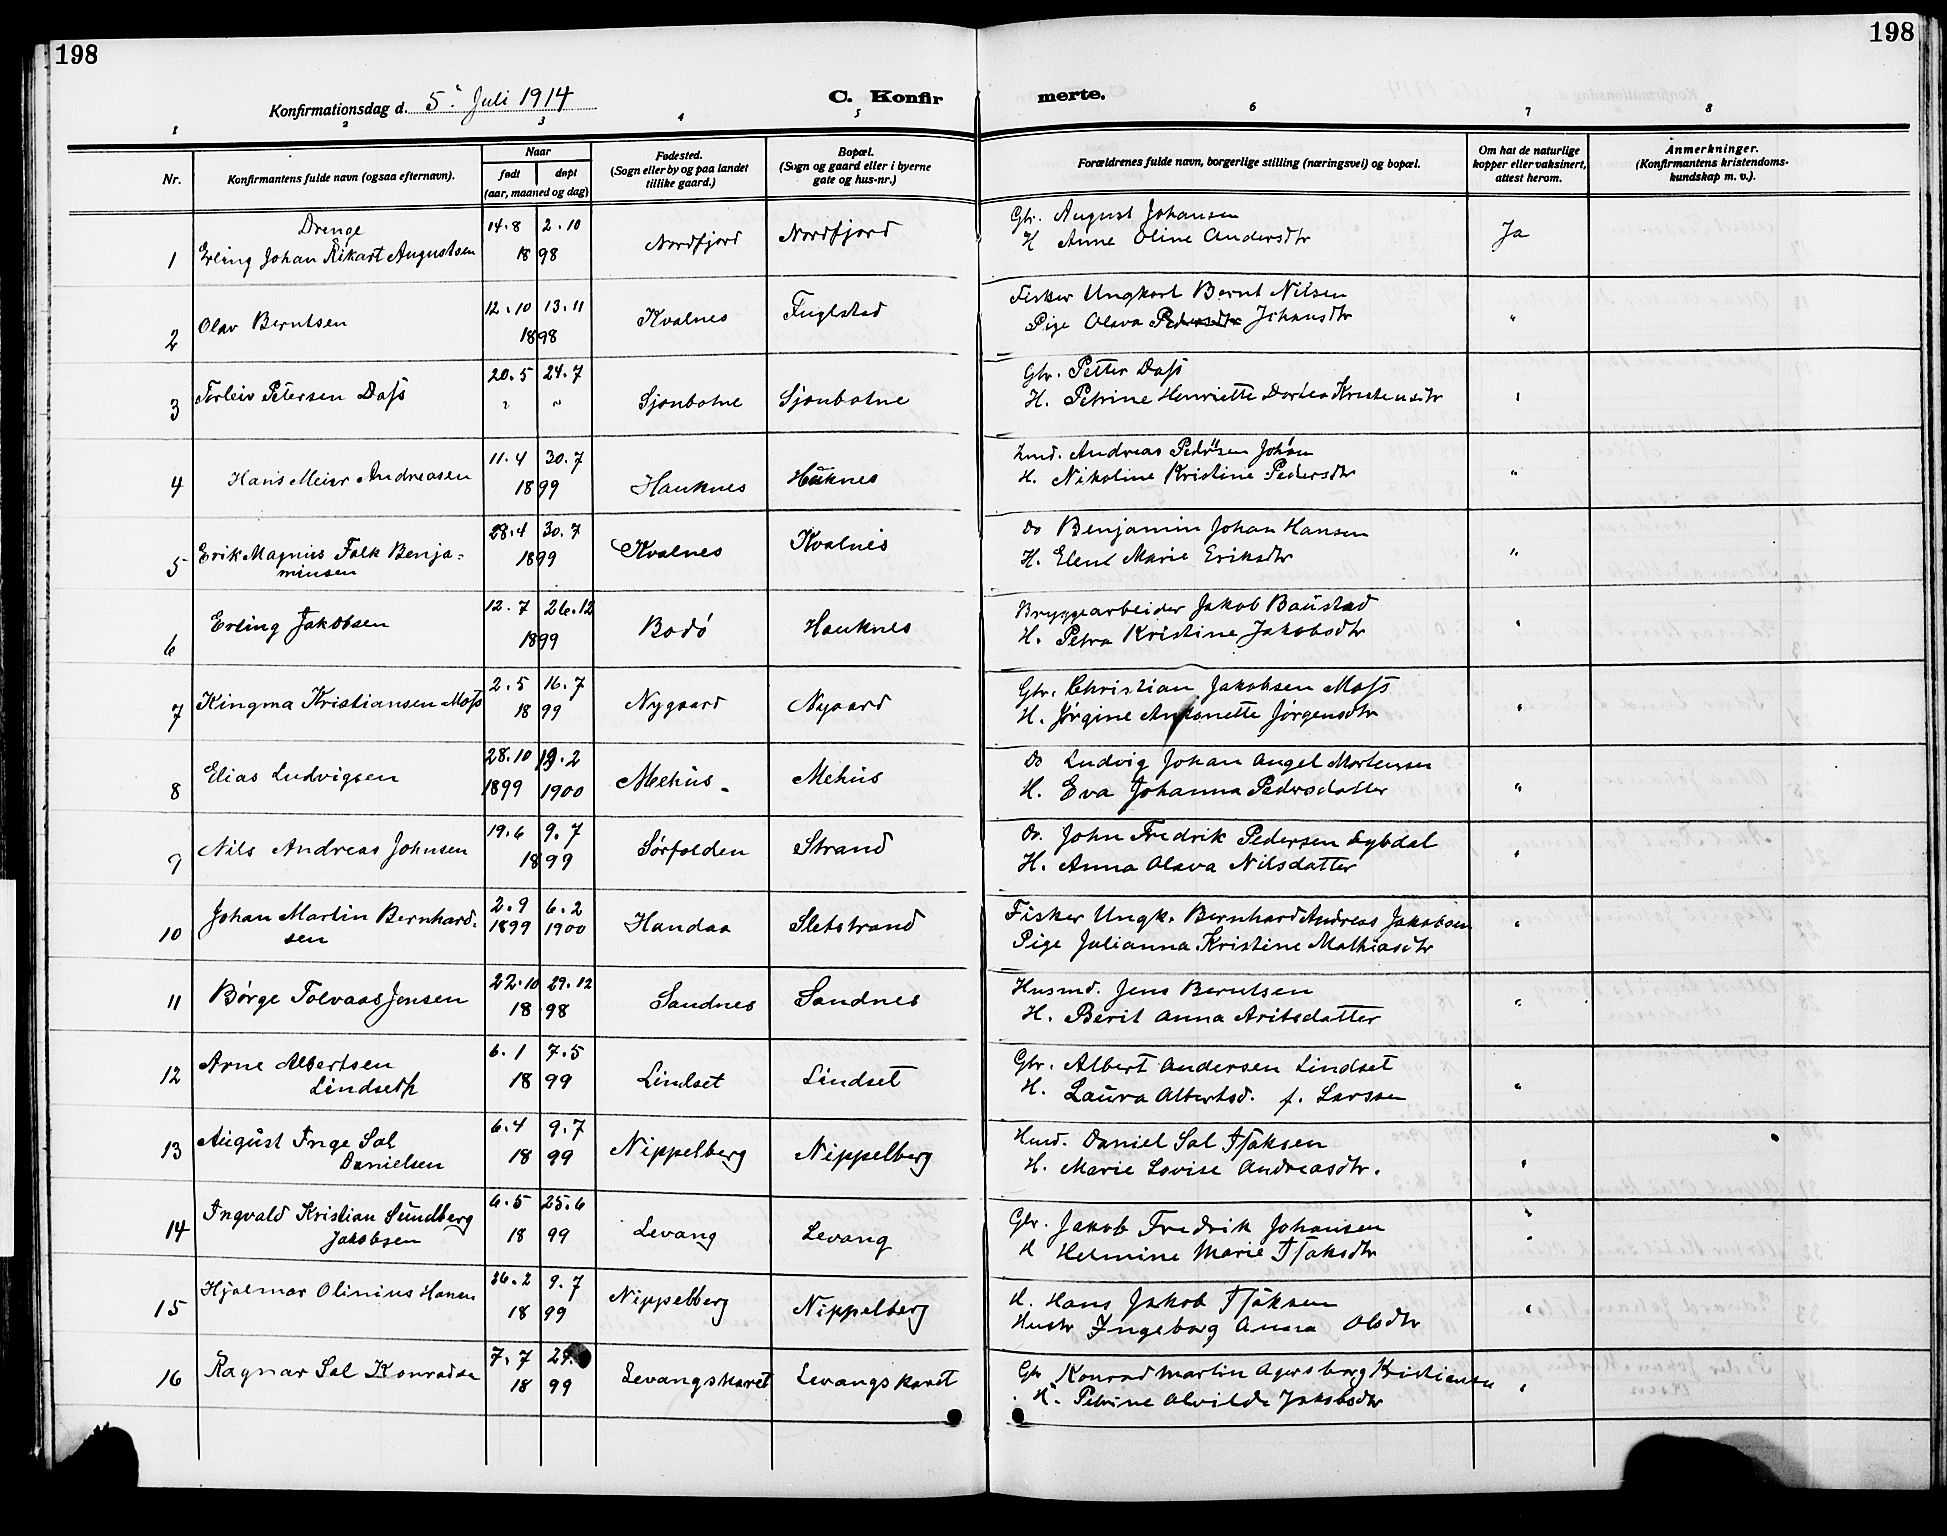 198
198
Konfirmationsdag d. 5. Juli 1914
C. Konfirmerte.
1 2 3 4 5 6 7 8
Nr.
Konfirmantens fulde navn (ogsaa efternavn).
Naar
født
døpt
(aar, maaned og dag)
Fødested.
(Sogn eller by og paa landet
tillike gaard.)
Bopæl.
(Sogn og gaard eller i byerne
gate og hus-nr.)
Forældrenes fulde navn, borgerlige stilling (næringsvei) og bopæl.
Om hat de naturlige
kopper eller vaksinert,
attest herom.
Anmerkninger.
(Konfirmantens kristendoms-
kundskap m. v.).
Drenge
14.8 2.10 Gbr. August Johansen
1 Erling Johan Rikart Augustsen 1898 Nordfjord Nordfjord H Anne Oline Andersdtr Ja
12.10 13.11 Fisker Ungkarl Bernt Nilsen
2 Olav Berntsen 1898 Kvalnes Fuglstad Pige Olava Pedersdtr Johansdtr "
20.5 24.7 Gbr. Petter Dass
3 Torleiv Petersen Dass " " Sjonbotne Sjonbotne H. Petrine Henriette Dortea Kristensdtr "
11.4 30.7 Andreas Pedersen Johan
4 Hans Meier Andreasen 1899 Hauknes Hauknes H. Nikoline Kristine Pedersdtr "
28.4 30.7 do Benjamin Johan Hansen
5 Erik Magnus Falk Benja-
minsen 1899 Kvalnes Kvalnes H. Elene Marie Eriksdtr "
12.7 26.12 Bryggearbeider Jakob Baustad
6 Erling Jakobsen 1899 Bodø Hauknes H. Petra Kristine Jakobsdtr "
2.5 16.7 Gbr. Christian Jakobsen Moss
7 Kingma Kristiansen Moss 1899 Nygaard Nygaard H. Jørgine Antonette Jørgensdtr "
28.10 2 Do Ludvig Johan Angel Mortensen
8 Elias Ludvigsen 1899 1900 Mehus Mehus H. Eva Johanna Pedersdatter "
19.6 9.7 Do. John Fredrik Pedersen Lybdal
9 Nils Andreas Johnsen 1899 Sørfolden Strand H. Anna Olava Nilsdatter "
2.9 6.2 Fisker Ungk. Bernhard Andreas Jakobsen
10 Johan Martin Bernhard-
sen 1899 1900 Handaa Sletstrand Pige Julianna Kristine Mathiasdtr "
22.10 29.12 Husmd. Jens Berntsen
11 Børge Tolvaas Jensen 1898 Sandnes Sandnes H. Berit Anna Aritsdatter "
6.1 7.5 Gbr. Albert Andersen Lindset
12 Arne Albertsen
Lindseth 1899 Lindset Lindset H. Laura Albertsd. f. Larssen "
6.4 9.7 Husd. Daniel Sal Isaksen
13 August Inge Sal
Danielsen 1899 Nippelberg Nippelberg H. Marie Lovise Andreasdtr. "
6.5 25.6 Gbr. Jakob Fredrik Johansen
14 Ingvald Kristian Sundberg
Jakobsen 1899 Levang Levang H Helmine Marie Isaksdtr "
26.2 9.7 H. Hans Jakob Isaksen
15 Hjalmar Olinius Hansen 1899 Nippelberg Nippelberg Hustr Ingeborg Anna Olsdtr "
7.7 Gbr Konrad Martin Agersborg Kristiansen
16 Ragnar Sal Konradsen 1899 Levangskaret Levangskaret H. Petrine Alvilde Jakobsdtr "